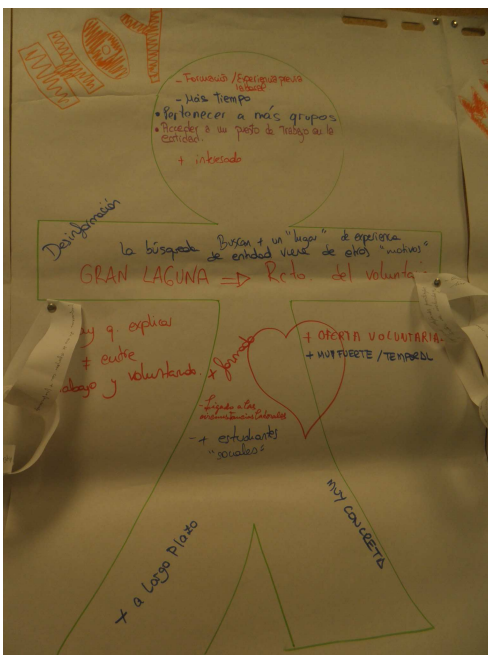 - Formación / Experiencia previa
laboral
- Más Tiempo
• Pertenecer a más grupos
• Acceder a un puesto de trabajo en la
entidad.
+ interesado
Desinformación
Buscan + un "lugar" de experiencia
La búsqueda de entidad viene de otros "motivos"
GRAN LAGUNA => Rcto. del volunta
y q. explicar
+ entre
abajo y voluntariado.
+ formado
+ OFERTA VOLUNTARIA.
+ MUY FUERTE / TEMPORAL
- Ligado a las
circunstancias laborales
- + estudiantes
"sociales"
+ a Largo Plazo
MUY CONCRETO